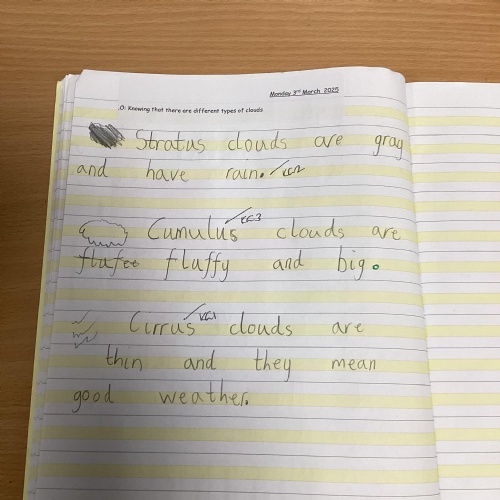 Monday 3rd March 2025
O: Knowing that there are different types of clouds
Stratus clouds are gray
and have rain. KC2
KC3
Cumulus clouds are
flufee fluffy and big.
KC1
Cirrus clouds are
thin and they mean
good weather.